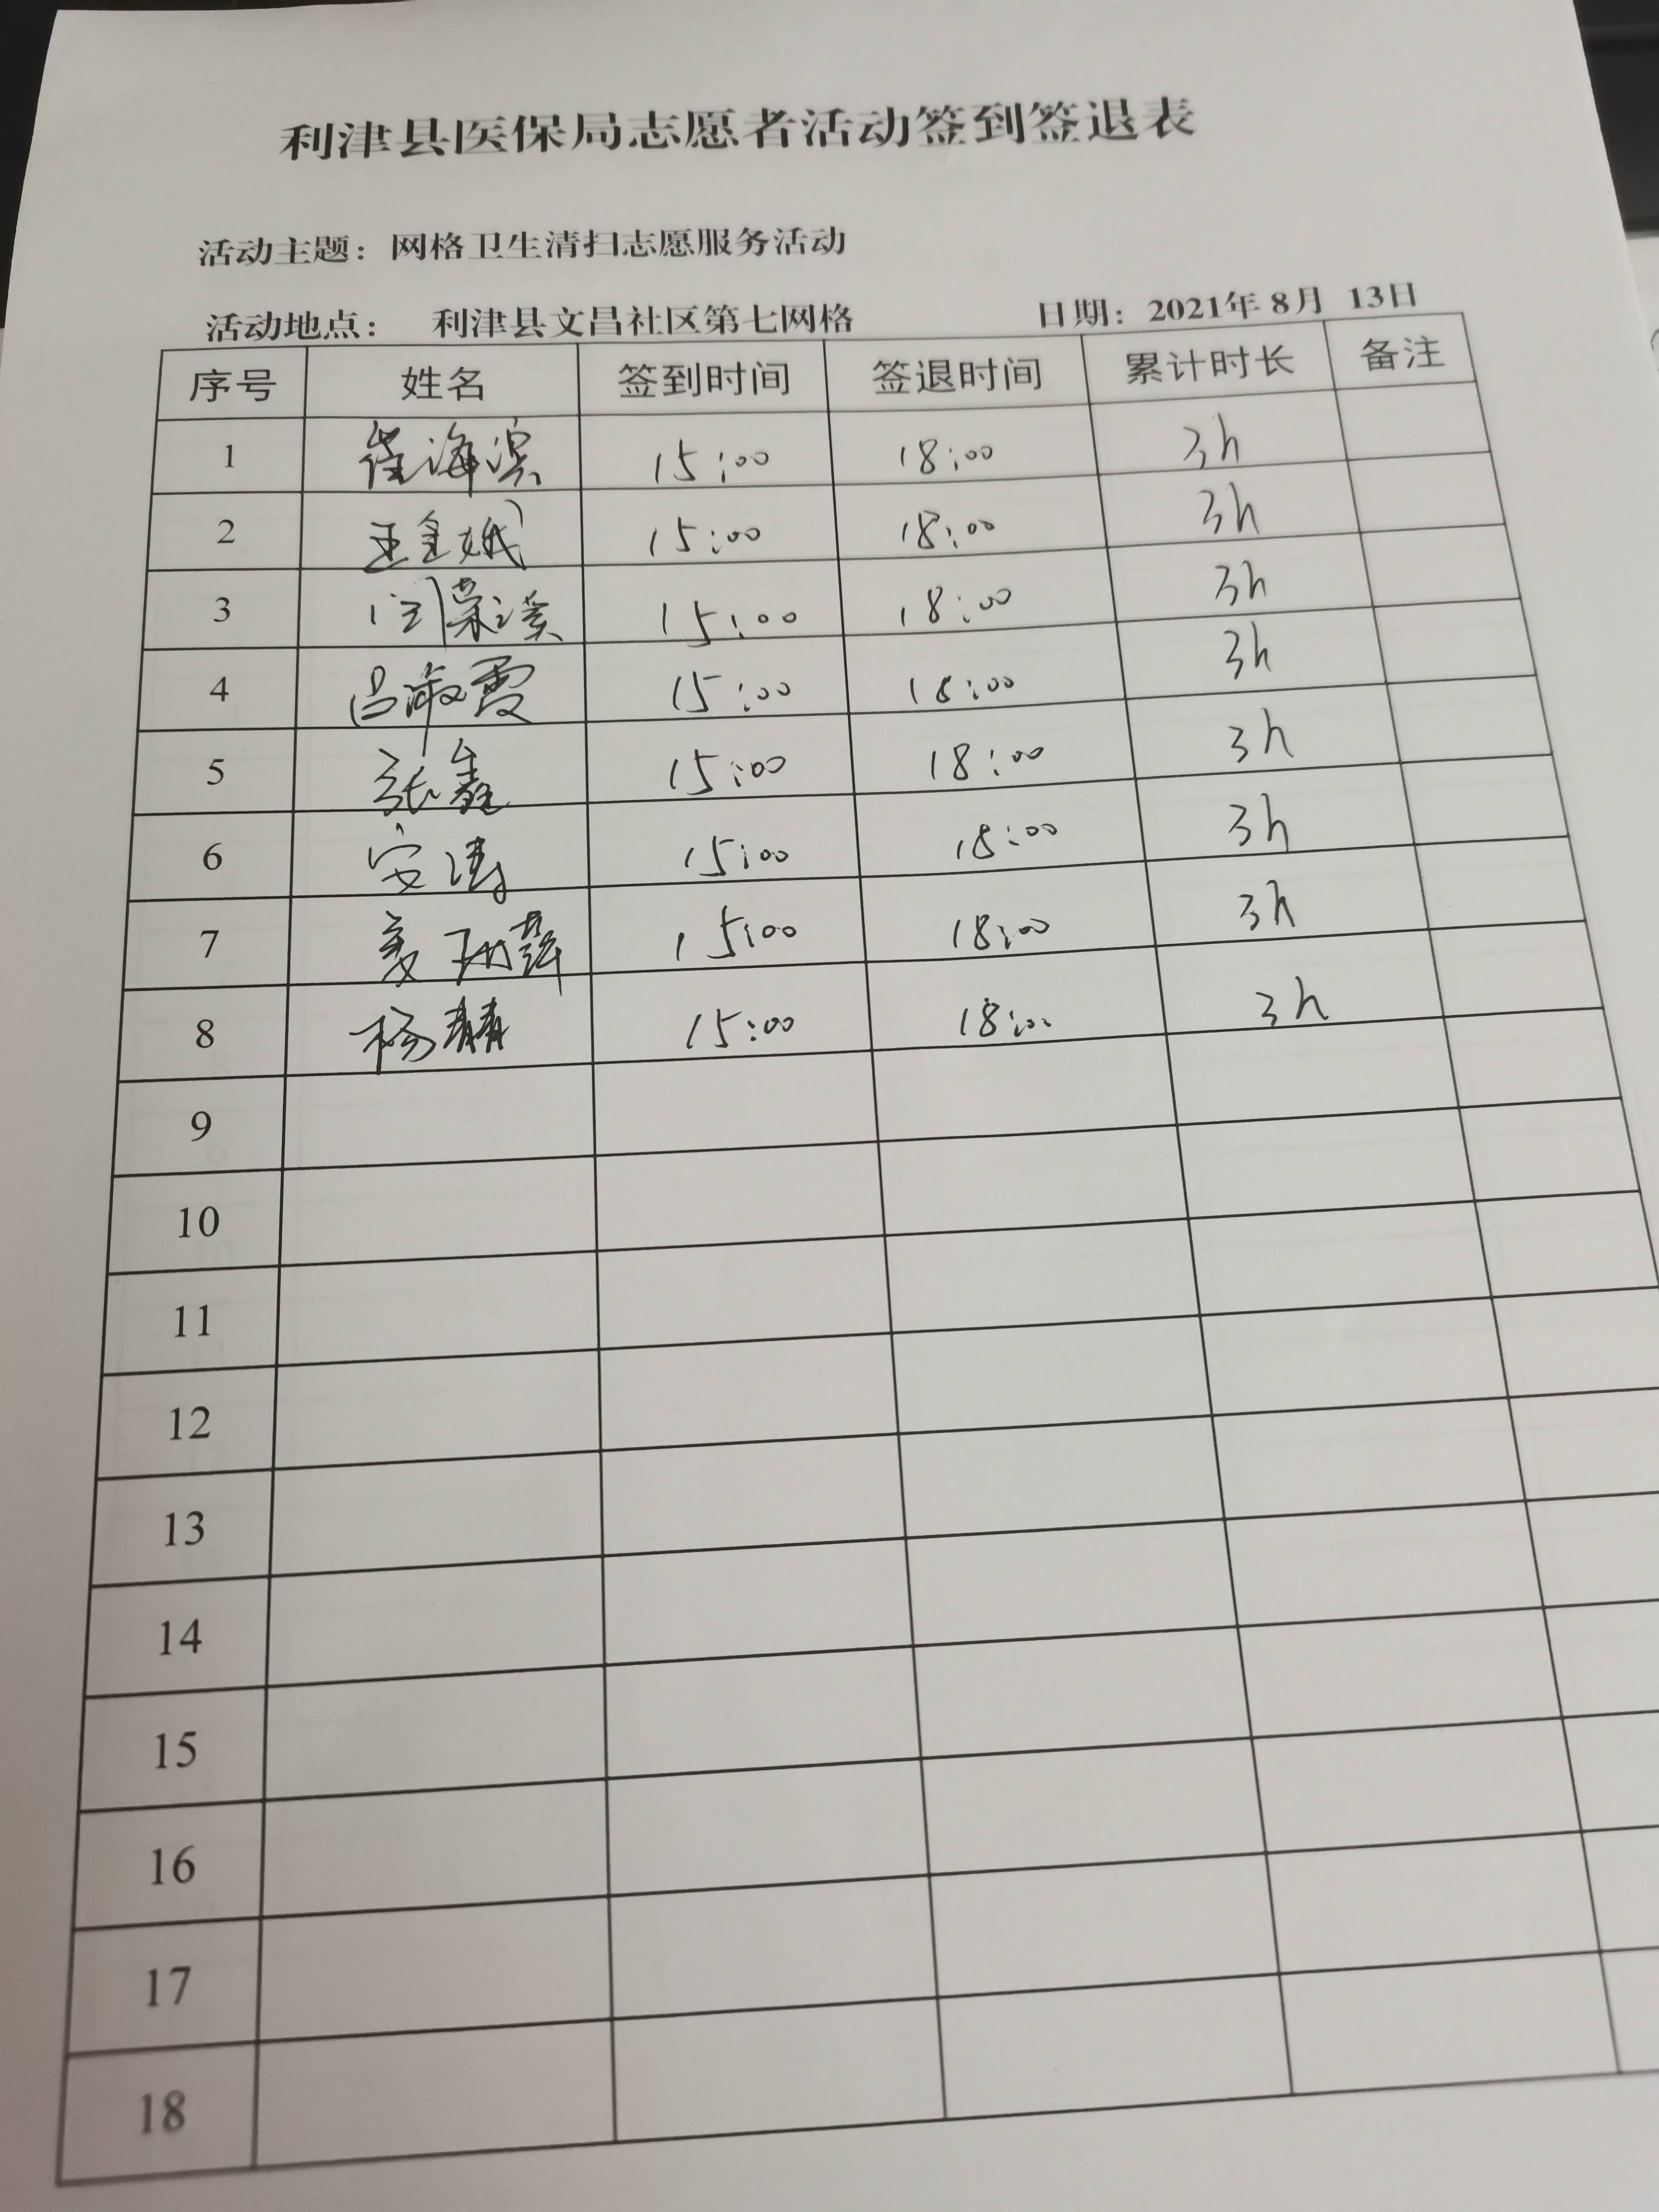 利津县医保局志愿者活动签到签退表
活动主题：网格卫生清扫志愿服务活动
活动地点： 利津县文昌社区第七网格 日期：2021年 8月 13日
序号 姓名 签到时间 签退时间 累计时长 备注
1 崔海滨 15:00 18:00 3h
2 15:00 18:00 3h
3 闫荣溪 15:00 18:00 3h
4 吕淑霞 15:00 18:00 3h
5 张鑫 15:00 18:00 3h
6 安涛 15:00 18:00 3h
7 15:00 18:00 3h
8 杨静 15:00 18:00 3h
9
10
11
12
13
14
15
16
17
18